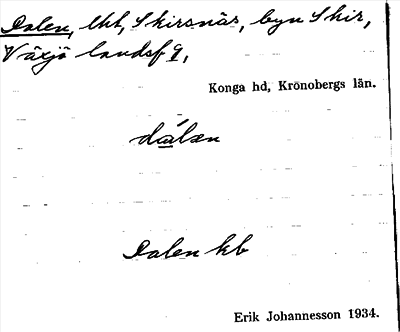 Dalen, lht, Skirsnäs, byn Skir,
Växjö landsf g,
Konga hd, Kronobergs län.
dálæn
Dalen kb
Erik Johannesson 1934.